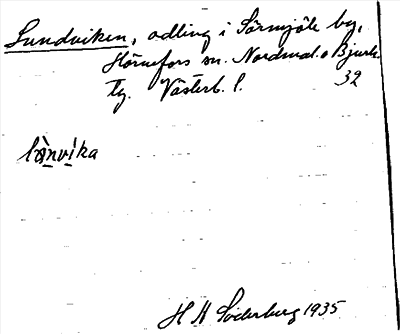 Lundviken, odling i Sörmjöle by,
Hörnefors sn. Nordmal. o Bjurh.
tg. Västerb. l. 32
lànvika
H A Söderberg 1935